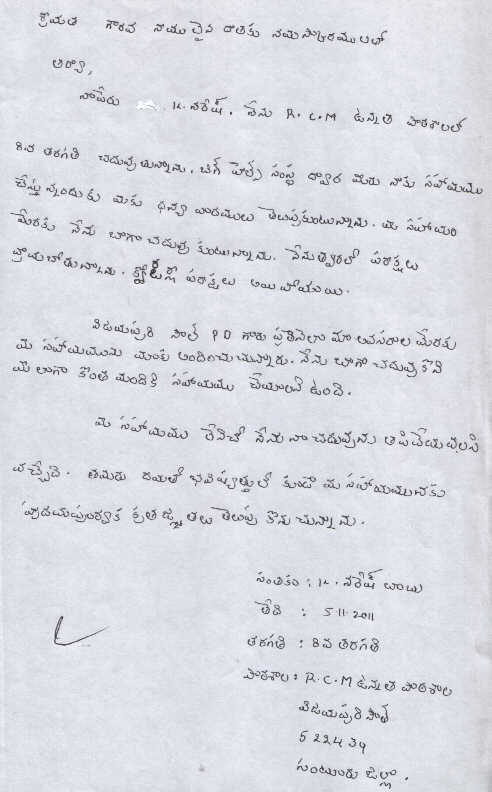 శ్రీమతి గౌరవ నాయులైన దాతకు నమస్కారములతో
ఆర్యా,
నాపేరు K. నరేష్. నేను R.C.M ఉన్నత పాఠశాలలో
8వ తరగతి చదువుతున్నాను. బిగ్ హెల్ప్ సంస్థ ద్వారా మీరు నాకు సహాయము
చేస్తున్నందుకు మీకు ధన్యవాదములు తెలుపుకుంటున్నాను. మీ సహాయం
మేరకు నేను బాగా చదువుకుంటున్నాను. నేను త్వరలో పరీక్షలు
వ్రాయబోతున్నాను. క్వార్టర్లీ పరీక్షలు అయిపోయాయి.
విజయపురి సౌత్ PD గారు ప్రతినెలా మా అవసరాల మేరకు
మీ సహాయమును మాకు అందించుచున్నారు. నేను బాగా చదువుకొని
మీలాగా కొంత మందికి సహాయము చేయాలని ఉంది.
మీ సహాయము లేనిచో నేను నా చదువును ఆపివేయవలసి
వచ్చేది. తమరు దయతో భవిష్యత్తులో కూడా మీ సహాయమునకు
హృదయపూర్వక కృతజ్ఞతలు తెలుపుకొనుచున్నాను.
సంతకం : K. నరేష్ బాబు
తేది : 5-11-2011
తరగతి : 8వ తరగతి
పాఠశాల : R.C.M ఉన్నత పాఠశాల
విజయపురి సౌత్
522439
గుంటూరు జిల్లా.